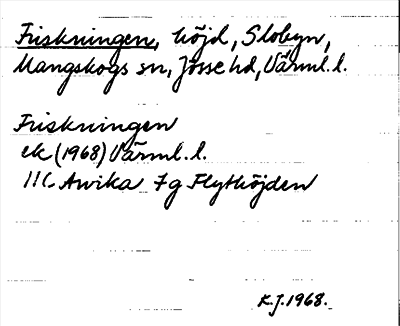 Friskningen, höjd, Slobyn,
Mangskogs sn, Jösse hd, Värml. l.
Friskningen
ek (1968) Värml. l.
11C Arvika 7g Flythöjden
K.J. 1968.